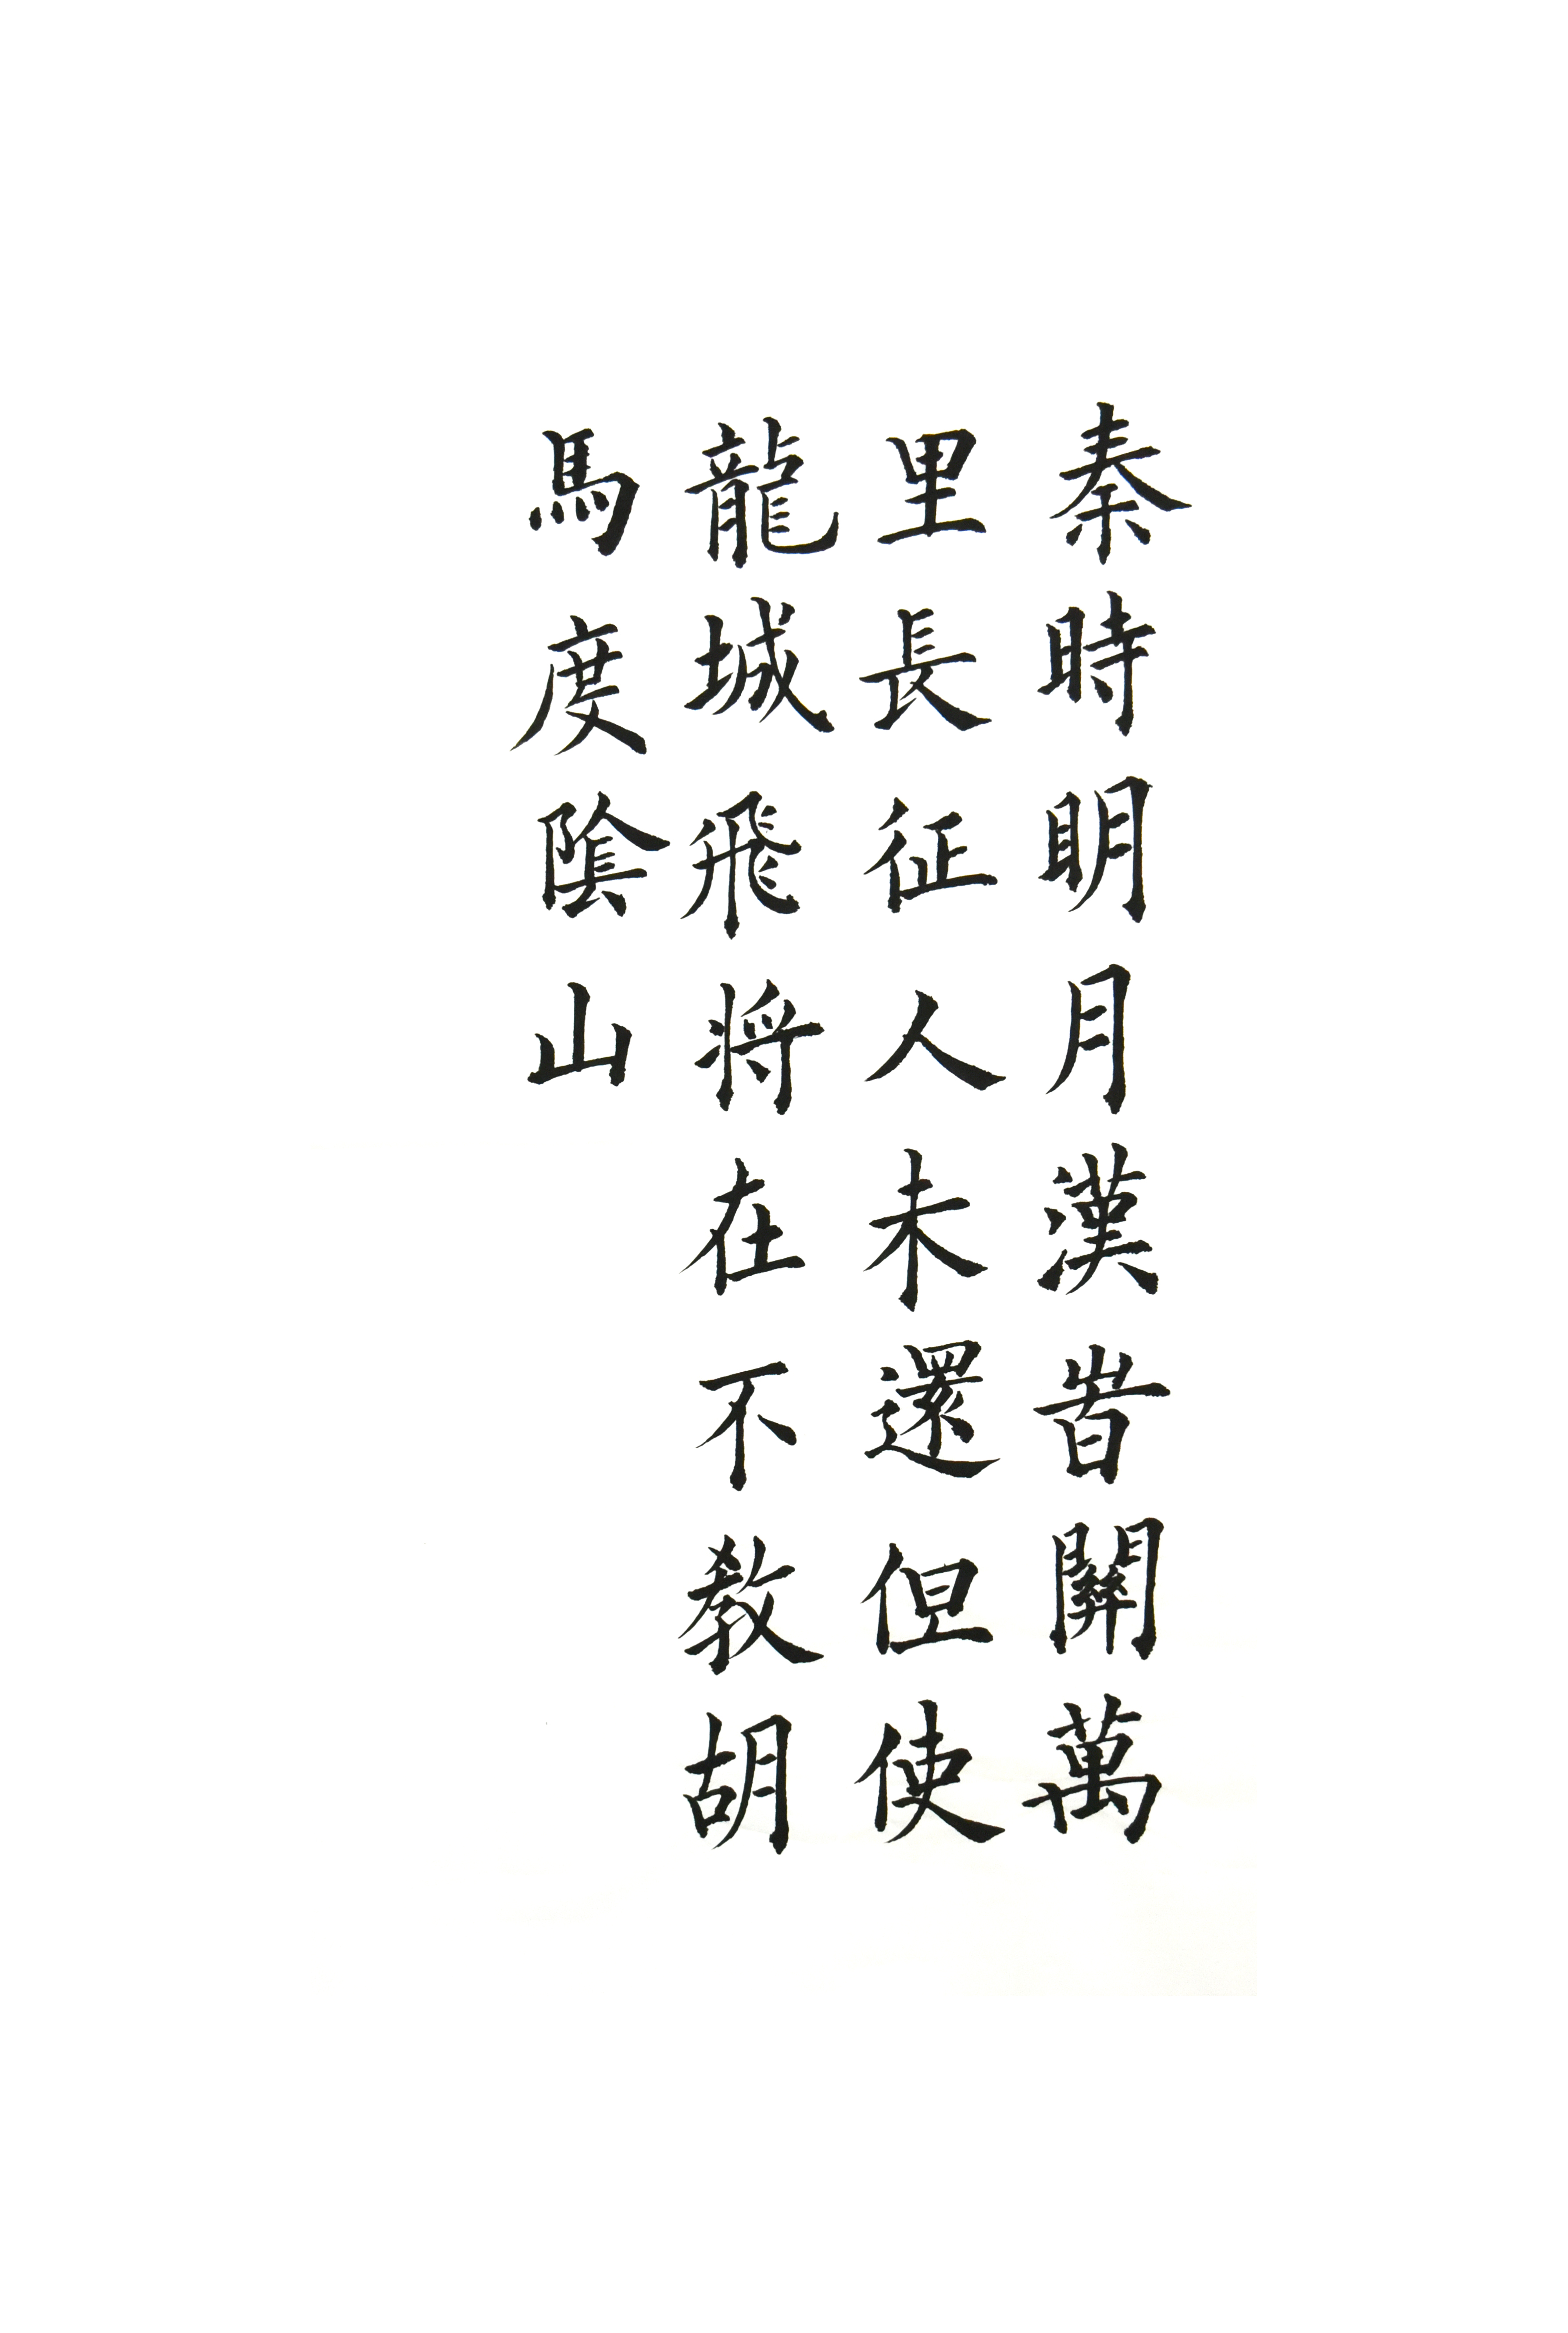 秦時明月漢旹關萬
里長征人未還但使
龍城飛將在不教胡
馬度陰山